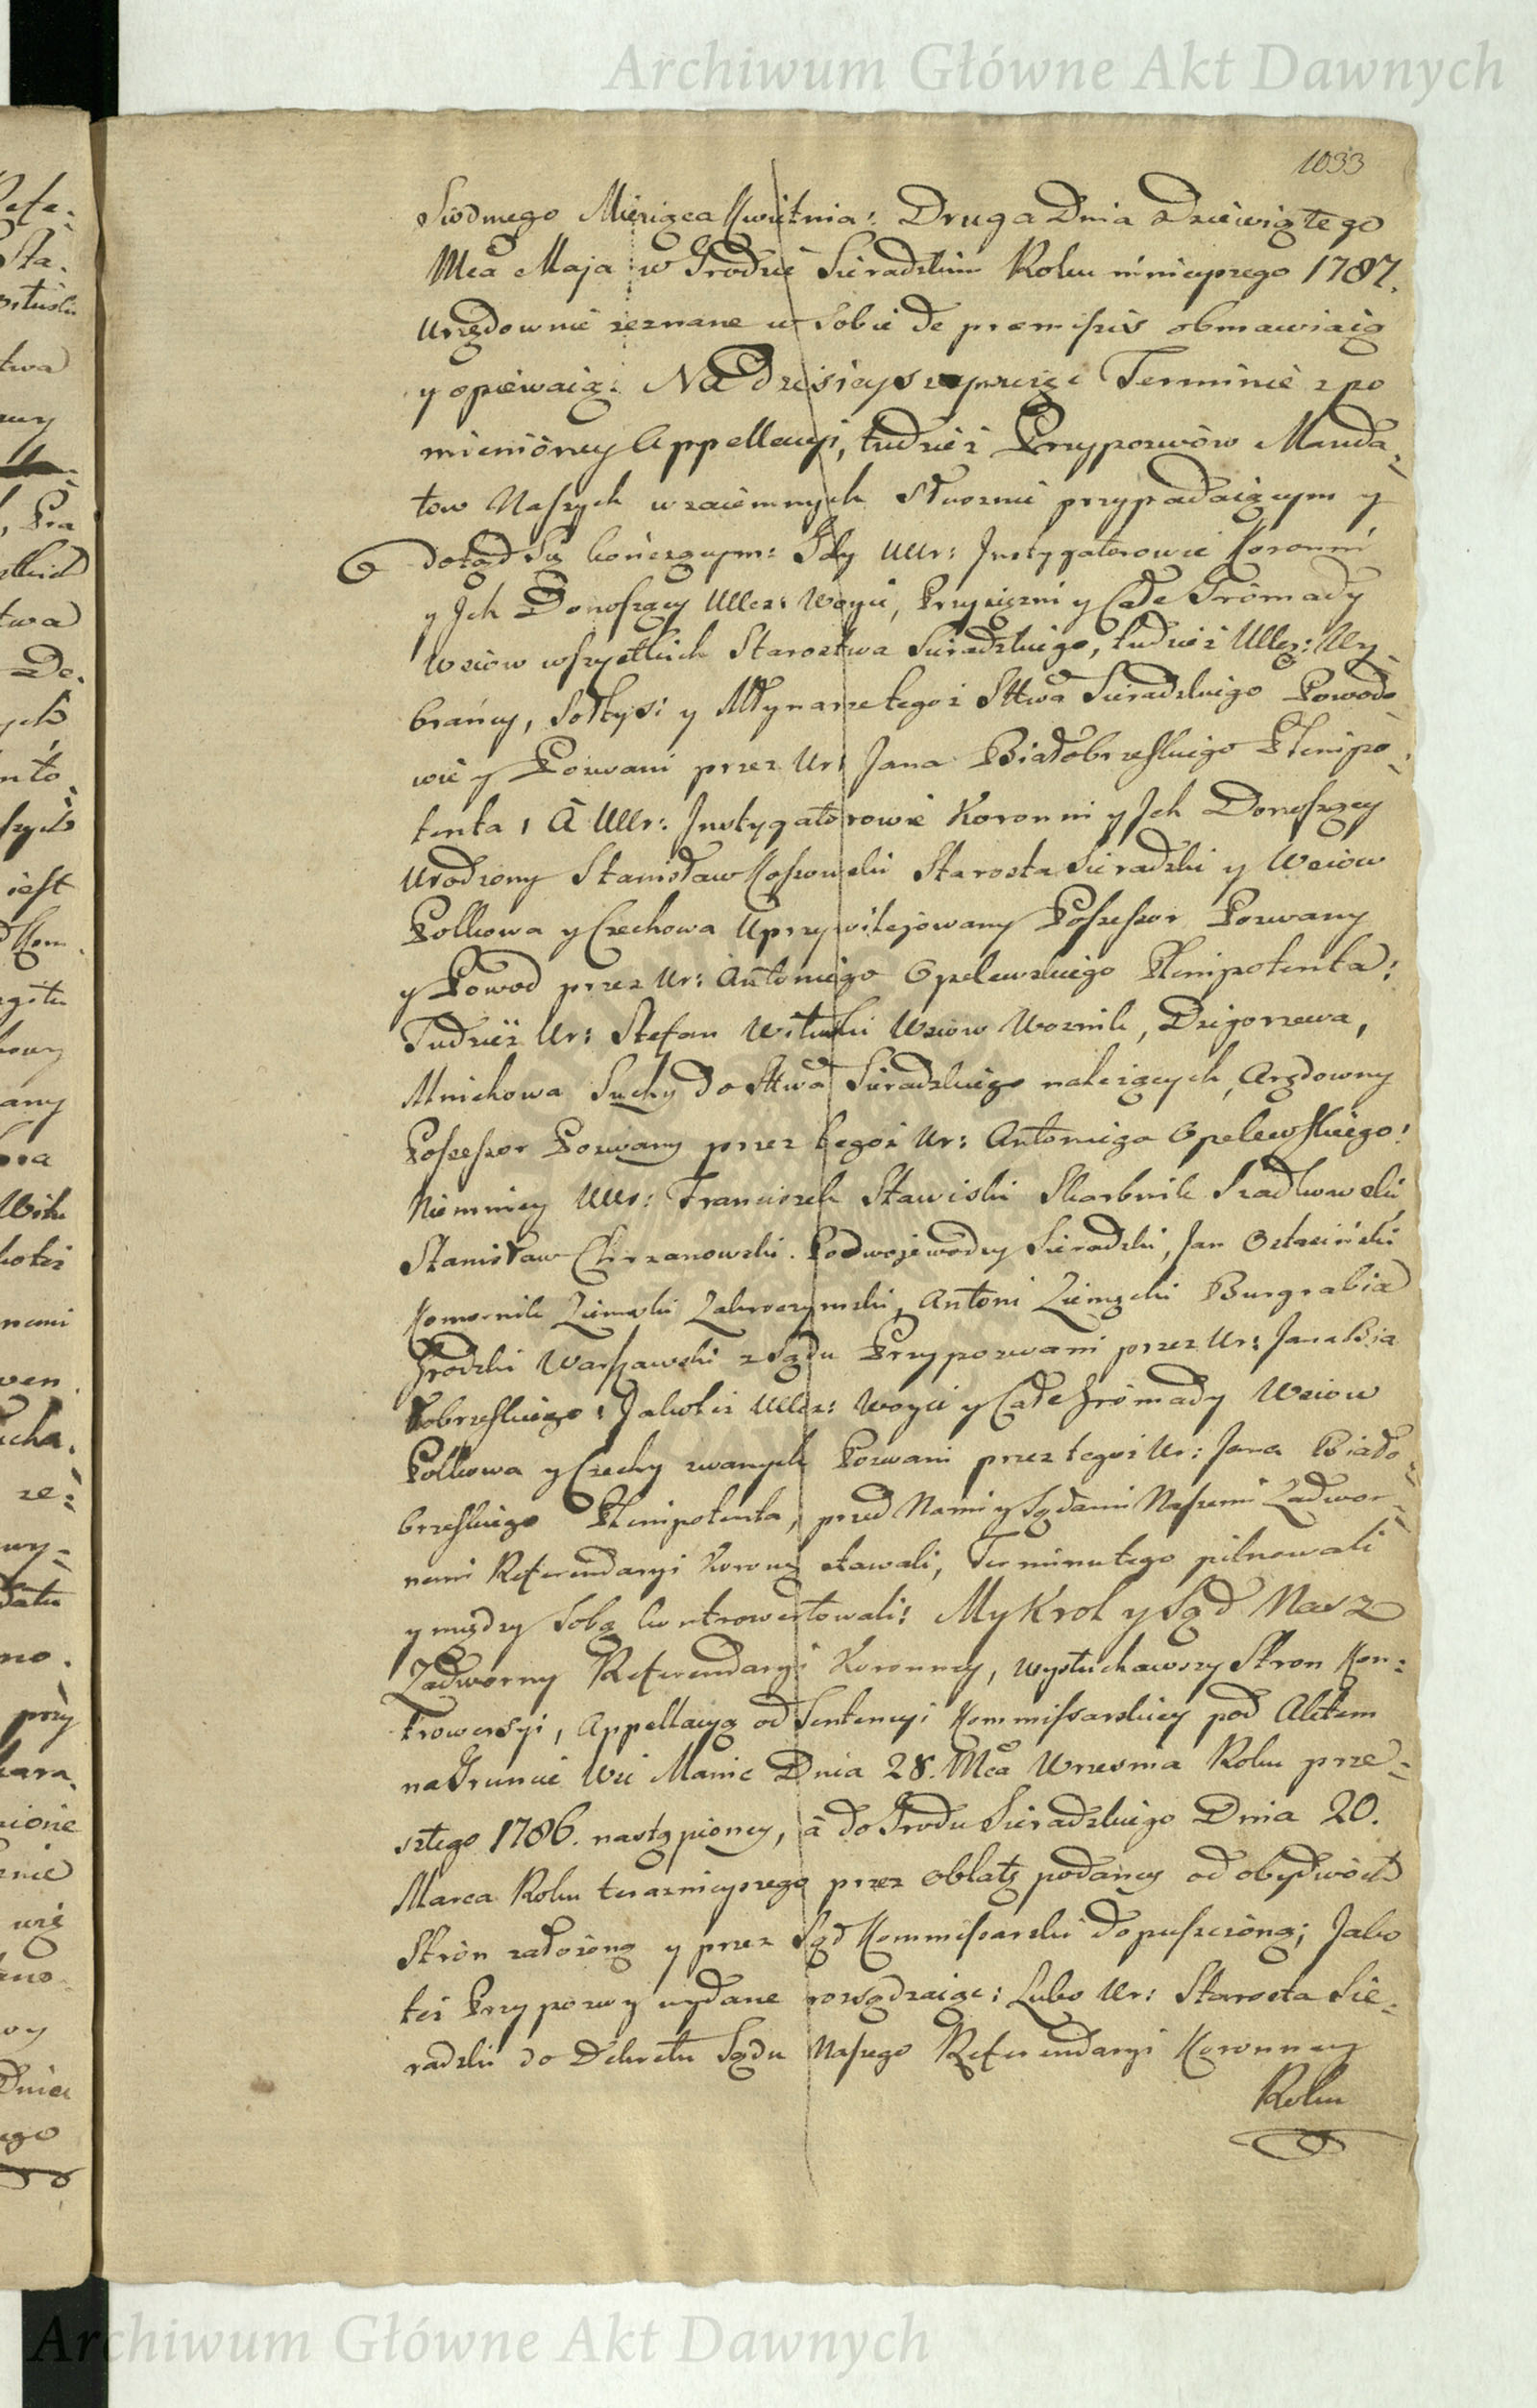 Archiwum Główne Akt Dawnych
1033
Siodmego Miesiąca Kwietnia: Druga Dnia Dziewiątego
Mca Maja w Grodzie Sieradzkim Roku ninieyszego 1787.
Urzędownie zeznane w Sobie de premissis obmawiaią
y opiewaią: Na dzisieyszym Terminie z po
mienioney Appellacyi, tudzież Przypozwów Manda-
tow Naszych wzaiemnych słusznie przypadaiącym y
dotąd się kończącym: Gdy UUr: Instygatorowie Koronni
y Jch Donoszący UUcz: Woyci, Przysiężni y Całe Gromady
Wsiow wszystkich Starostwa Sieradzkiego, tudzież UUcz: Wy-
brańcy, Sołtysi y Młynarze tegoż Sttwa Sieradzkiego Powodo
wie y Pozwani przez Ur: Jana Białobrzeskiego Plenipo-
tenta, A UUr: Instygatorowie Koronni y Jch Donoszący
Urodzony Stanisław Kossowski Starosta Sieradzki y Wsiow
Polkowa y Czechowa Uprzywilejowany Possessor Pozwany
y Powod przez Ur: Antoniego Opelewskiego Plenipotenta:
Tudzież Ur: Stefan Wituski Wsiow Woznik, Dzigorzewa,
Mnichowa Suchy do Sttwa Sieradzkiego należących, Arędowny
Possessor Pozwany przez tegoż Ur: Antoniego Opelewskiego:
Niemniey UUr: Franciszek Stawiski Skarbnik Szadkowski,
Stanisław Chrzanowski Podwojewodzy Sieradzki, Jan
Komornik Ziemski Zakroczymski, Antoni Ziemęcki Burgrabia
Grodzki Warszawski z Sądu Przypozwani przez Ur: Jana Bia
łobrzeskiego: Jakoteż UUcz: Woyci y Całe Gromady Wsiow
Polkowa y Czechy zwanych Pozwani przez tegoż Ur: Jana Biało-
brzeskiego Plenipotenta, przed Nami y Sądami Naszemi Zadwor-
nemi Referendaryi Korony stawali, Terminu tego pilnowali
y między Sobą kontrowertowali: My Krol y Sąd Nasz
Zadworny Referendaryi Koronney, wysłuchawszy Stron Kon-
trowersyi, Appellacyą od Sentencyi Kommissarskiey pod Aktem
na Gruncie Wsi Manic Dnia 28. Mca Wrzesnia Roku prze-
szłego 1786. nastąpioney, à do Grodu Sieradzkiego Dnia 20.
Marca Roku teraznieyszego przez oblatę podaney od obydwóch
Strón założoną y przez Sąd Kommissarski dopuszczoną; Jako
też Przypozwy wydane rozsądzaiąc: Lubo Ur: Starosta Sie-
radzki do Dekretu Sądu Naszego Referendaryi Koronney
Roku
Archiwum Główne Akt Dawnych